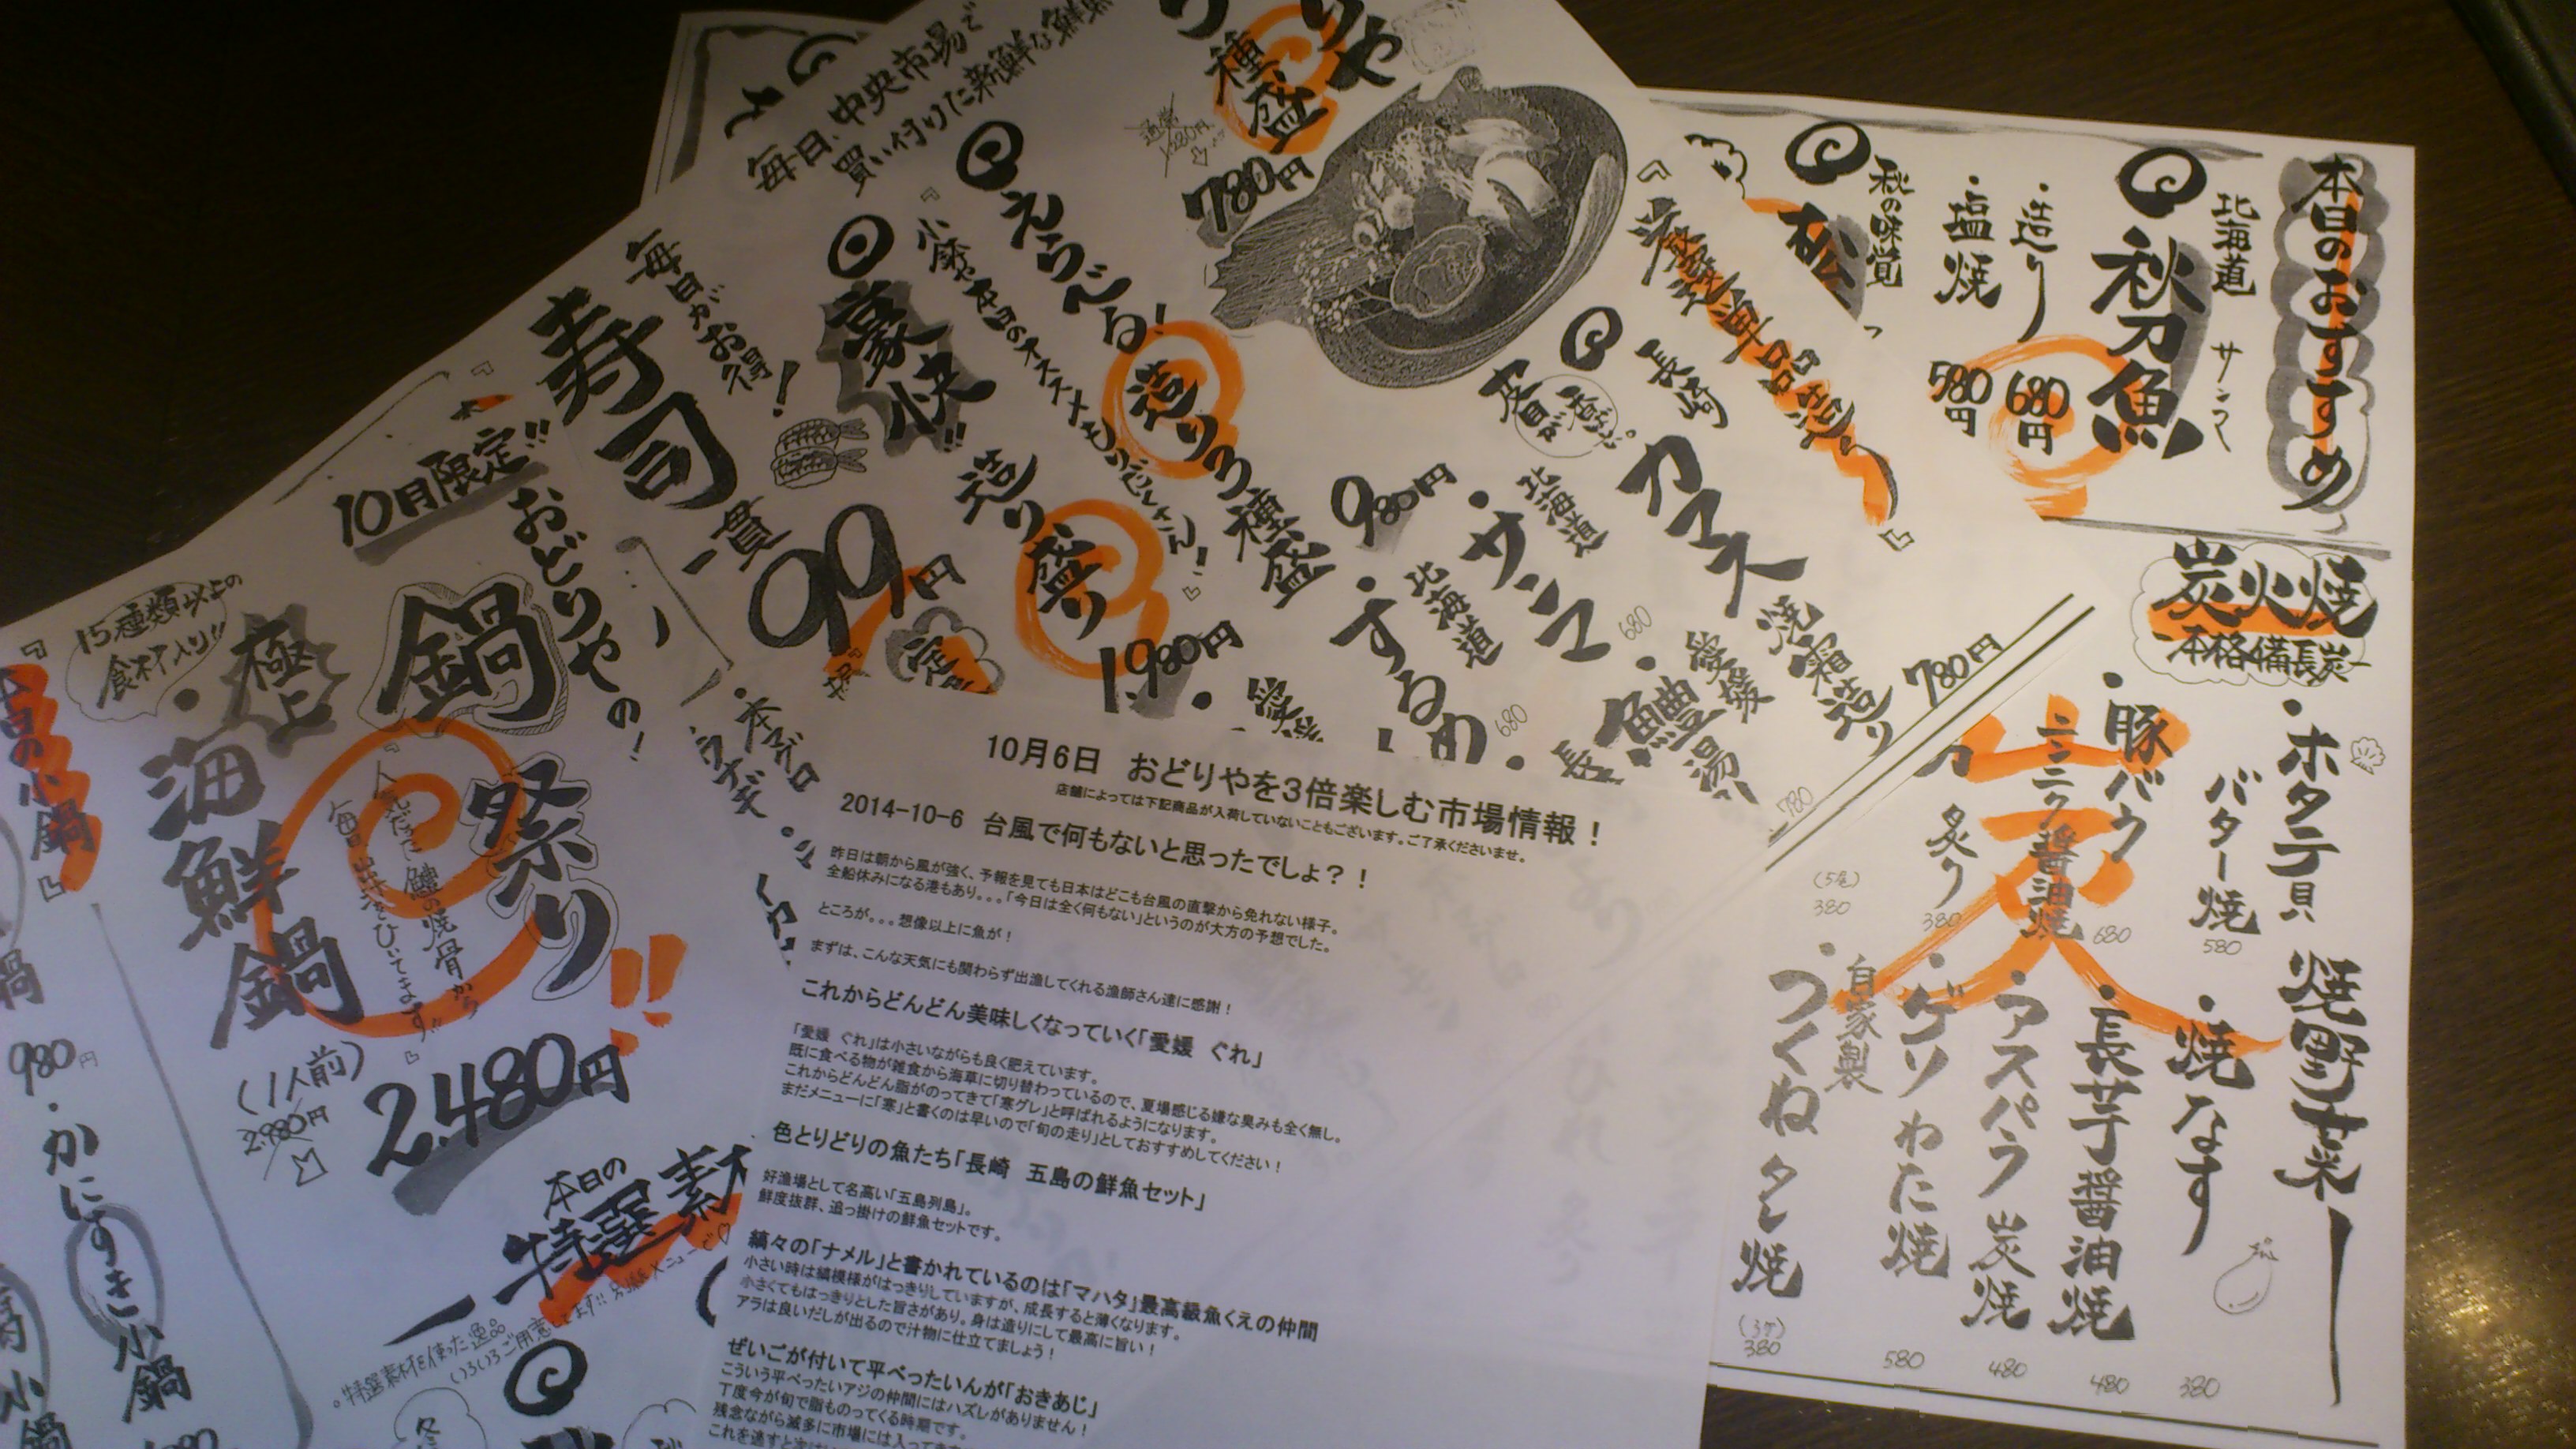 本日のおすすめ
北海道 サンマ
秋刀魚
・造り 680円
・塩焼 580円
秋の味覚
松
炭火焼
-本格備長炭-
・ホタテ貝
バター焼
580
・豚バラ
ニンニク醤油焼
680
炙り
380
(5尾)
380
焼野菜
・焼なす
380
・長芋醤油焼
480
・アスパラ炭焼
480
・ゲソわた焼
580
自家製
・つくねタン焼
(3ケ)
380
りや
種盛
通常
1,280円
780円
毎日、中央市場で
買い付けた新鮮な鮮魚
えらべる!
造り3種盛
980円
豪快!!
造り盛り
1,980円
長崎
カマス
焼霜造り
780円
・北海道
サンマ
680
・北海道
するめ
680
・愛媛
鱧湯
780
毎日がお得!
寿司
一貫
99円
10月限定!!
おどりやの!
鍋祭り!!
15種類以上の
食材入り!!
・極上
海鮮鍋
(1人前)
2,980円
2,480円
本日の小鍋
鍋
980円
・かにすき小鍋
本日の
特選素材
・特選素材を使った逸品
いろいろご用意してます!!
10月6日 おどりやを3倍楽しむ市場情報!
店舗によっては下記商品が入荷していないこともございます。ご了承くださいませ。
2014-10-6 台風で何もないと思ったでしょ?!
昨日は朝から風が強く、予報を見ても日本はどこも台風の直撃から免れない様子。
全船休みになる港もあり。。。「今日は全く何もない」というのが大方の予想でした。
ところが。。。想像以上に魚が!
まずは、こんな天気にも関わらず出漁してくれる漁師さん達に感謝!
これからどんどん美味しくなっていく「愛媛 ぐれ」
「愛媛 ぐれ」は小さいながらも良く肥えています。
既に食べる物が雑食から海草に切り替わっているので、夏場感じる嫌な臭みも全く無し。
これからどんどん脂がのってきて「寒グレ」と呼ばれるようになります。
まだメニューに「寒」と書くのは早いので「旬の走り」としておすすめしてください!
色とりどりの魚たち「長崎 五島の鮮魚セット」
好漁場として名高い「五島列島」。
鮮度抜群、追っ掛けの鮮魚セットです。
縞々の「ナメル」と書かれているのは「マハタ」最高級魚くえの仲間
小さい時は縞模様がはっきりしていますが、成長すると薄くなります。
小さくてもはっきりとした旨さがあり。身は造りにして最高に旨い!
アラは良いだしが出るので汁物に仕立てましょう!
ぜいごが付いて平べったいんが「おきあじ」
こういう平べったいアジの仲間にはハズレがありません!
丁度今が旬で脂ものってくる時期です。
残念ながら滅多に市場には入って
これを逃すと